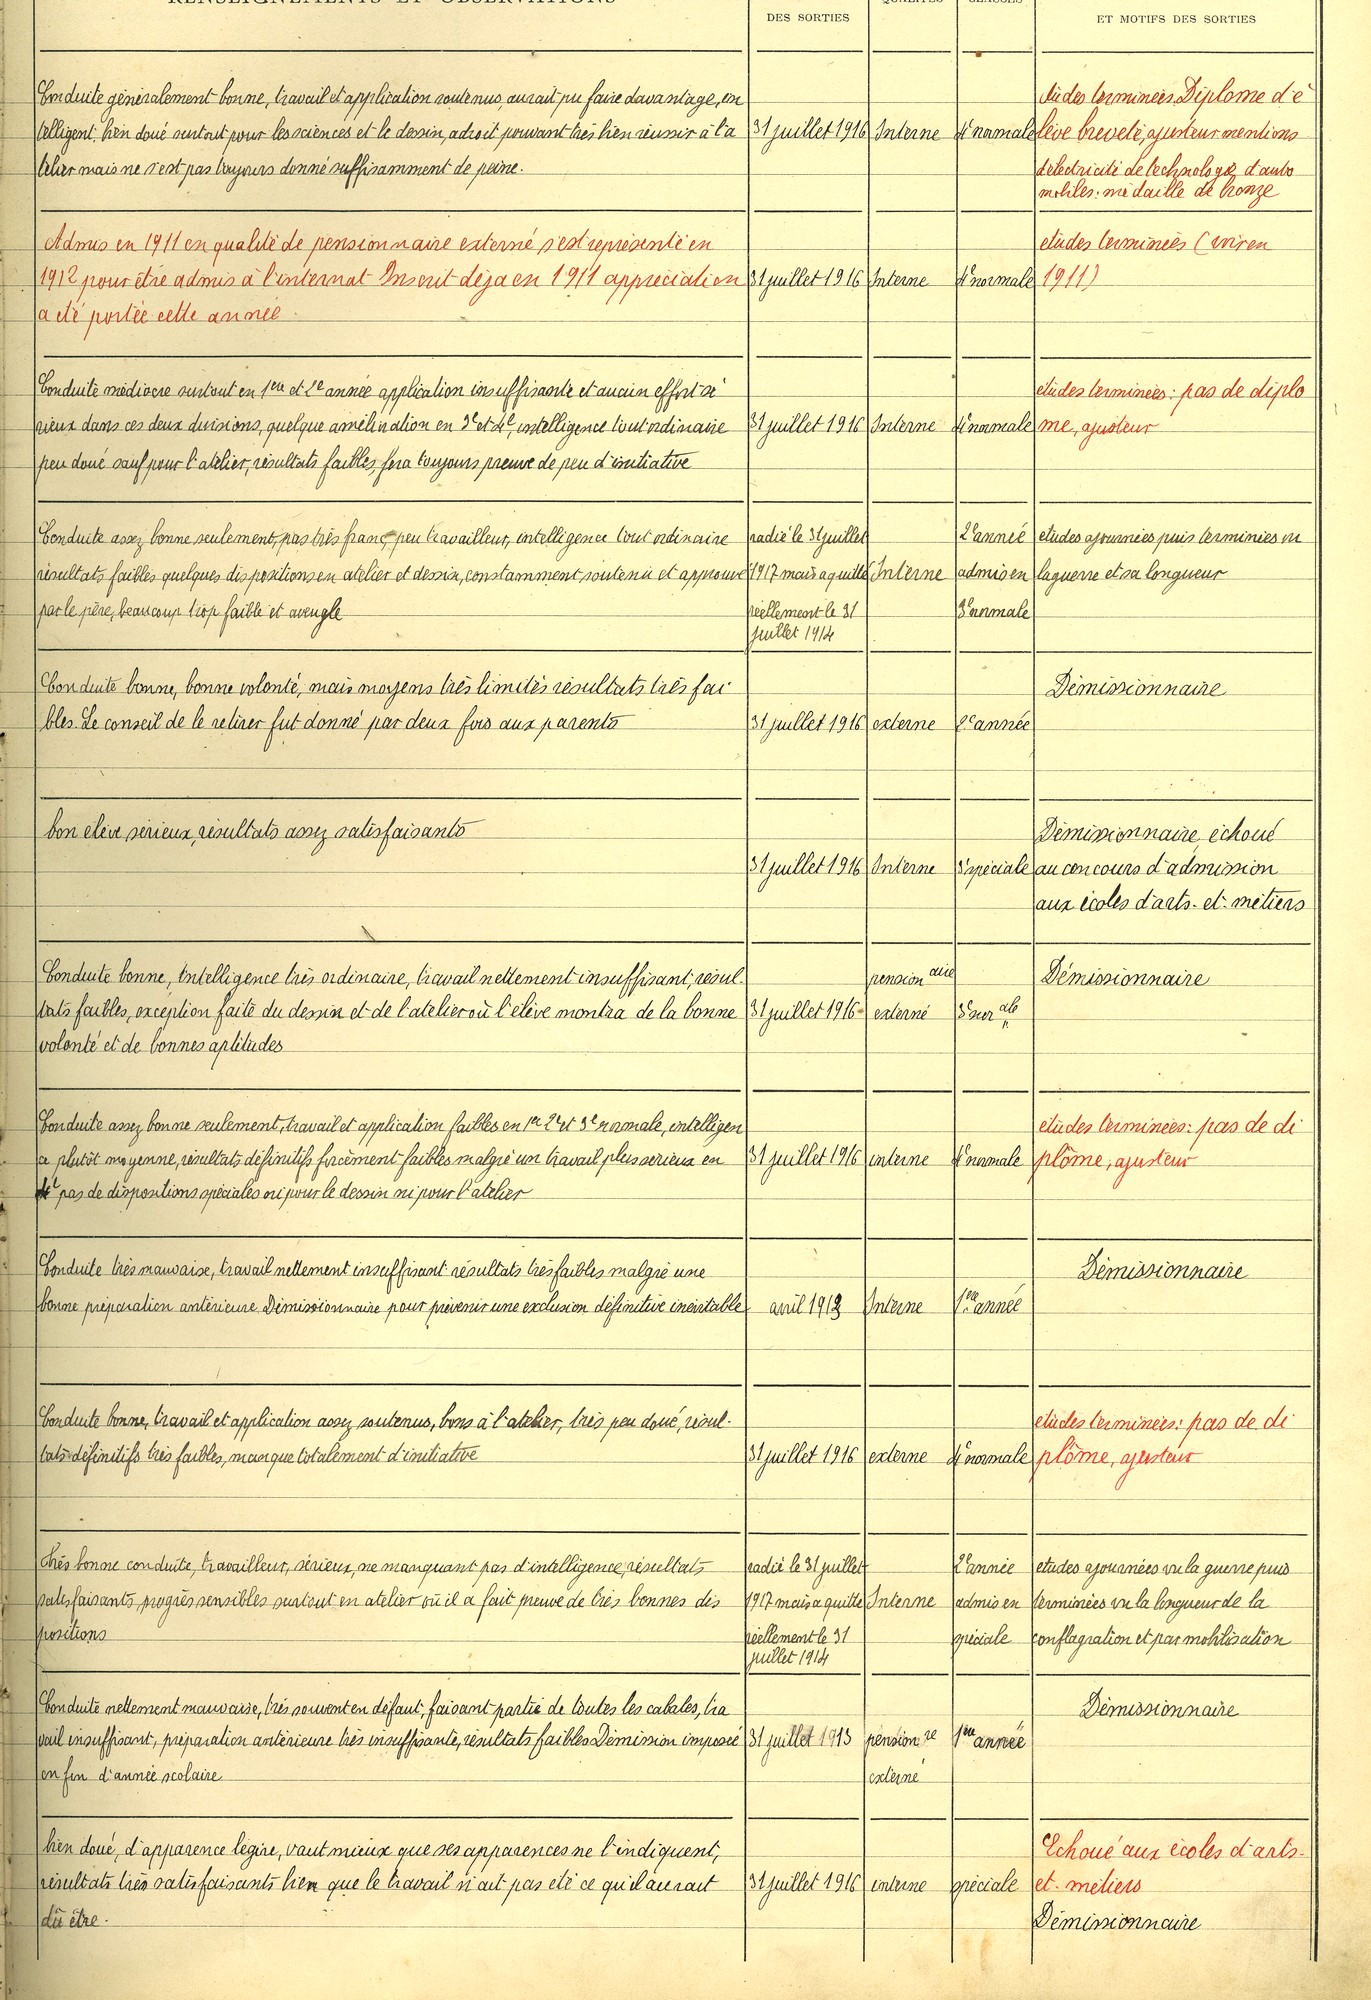 RENSEIGNEMENTS ET OBSERVATIONS
DES SORTIES
QUALITÉS
CLASSES
ET MOTIFS DES SORTIES
Conduite généralement bonne, travail et application soutenus, aurait pu faire davantage, in
telligent, bien doué surtout pour les sciences et le dessin, adroit pouvant très bien réussir à l'a
telier mais ne s'est pas toujours donné suffisamment de peine.
31 juillet 1916
Interne
4e normale
études terminées. Diplome d'é
lève breveté, ajusteur mentions
d'électricité de technologie d'auto
mobiles: médaille de bronze
Admis en 1911 en qualité de pensionnaire externé s'est représenté en
1912 pour être admis à l'internat Inscrit déja en 1911 appréciation
a été portée cette année
31 juillet 1916
Interne
4e normale
etudes terminées (voir en
1911)
Conduite médiocre surtout en 1ère et 2e année application insuffisante et aucun effort sé
rieux dans ces deux divisions, quelque amélioration en 3e et 4e, intelligence tout ordinaire
peu doué sauf pour l'atelier, résultats faibles, fera toujours preuve de peu d'initiative
31 juillet 1916
Interne
4e normale
etudes terminées: pas de diplo
me, ajusteur
Conduite assez bonne seulement, pas très franc, peu travailleur, intelligence tout ordinaire
résultats faibles quelques dispositions en atelier et dessin, constamment soutenu et approuvé
par le père, beaucoup trop faible et aveugle
radié le 31 juillet
1917 mais a quitté
réellement le 31
juillet 1914
Interne
2e année
admis en
3e normale
etudes ajournées puis terminées vu
la guerre et sa longueur
Conduite bonne, bonne volonté, mais moyens très limités résultats très fai
bles. Le conseil de le retirer fut donné par deux fois aux parents
31 juillet 1916
externe
2e année
Démissionnaire
bon élève sérieux, résultats assez satisfaisants
31 juillet 1916
Interne
3e spéciale
Démissionnaire, échoué
au concours d'admission
aux écoles d'arts-et-métiers
Conduite bonne, Intelligence très ordinaire, travail nettement insuffisant, résul-
tats faibles, exception faite du dessin et de l'atelier où l'élève montra de la bonne
volonté et de bonnes aptitudes
31 juillet 1916
pensionaire
externé
3e
Démissionnaire
Conduite assez bonne seulement, travail et application faibles en 1er 2e et 3e normale, intelligen
ce plutôt moyenne, résultats définitifs forcément faibles malgré un travail plus serieux en
4e pas de dispositions spéciales ni pour le dessin ni pour l'atelier
31 juillet 1916
interne
4e normale
etudes terminées: pas de di
plôme, ajusteur
Conduite très mauvaise, travail nettement insuffisant résultats très faibles malgré une
bonne préparation antérieure. Démissionnaire pour prévenir une exclusion définitive inévitable
avril 1913
Interne
1ère année
Démissionnaire
Conduite bonne, travail et application assez soutenus, bons à l'atelier, très peu doué, résul-
tats définitifs très faibles, manque totalement d'initiative
31 juillet 1916
externe
4e normale
etudes terminées: pas de di
plôme, ajusteur
Très bonne conduite, travailleur, sérieux, ne manquant pas d'intelligence, résultats
satisfaisants, progrès sensibles surtout en atelier où il a fait preuve de très bonnes dis
positions
radié le 31 juillet
1917 mais a quitté
réellement le 31
juillet 1914
Interne
2e année
admis en
spéciale
etudes ajournées vu la guerre puis
terminées vu la longueur de la
conflagration et par mobilisation
Conduite nettement mauvaise, très souvent en défaut, faisant partie de toutes les cabales, tra
vail insuffisant, préparation antérieure très insuffisante, résultats faibles Démission imposée
en fin d'année scolaire
31 juillet 1913
pension re
externé
1ère année
Démissionnaire
bien doué, d'apparence légère, vaut mieux que ses apparences ne l'indiquent,
résultats très satisfaisants bien que le travail n'ait pas été ce qu'il aurait
dû être.
31 juillet 1916
interne
spéciale
Echoué aux écoles d'arts-
et-métiers
Démissionnaire